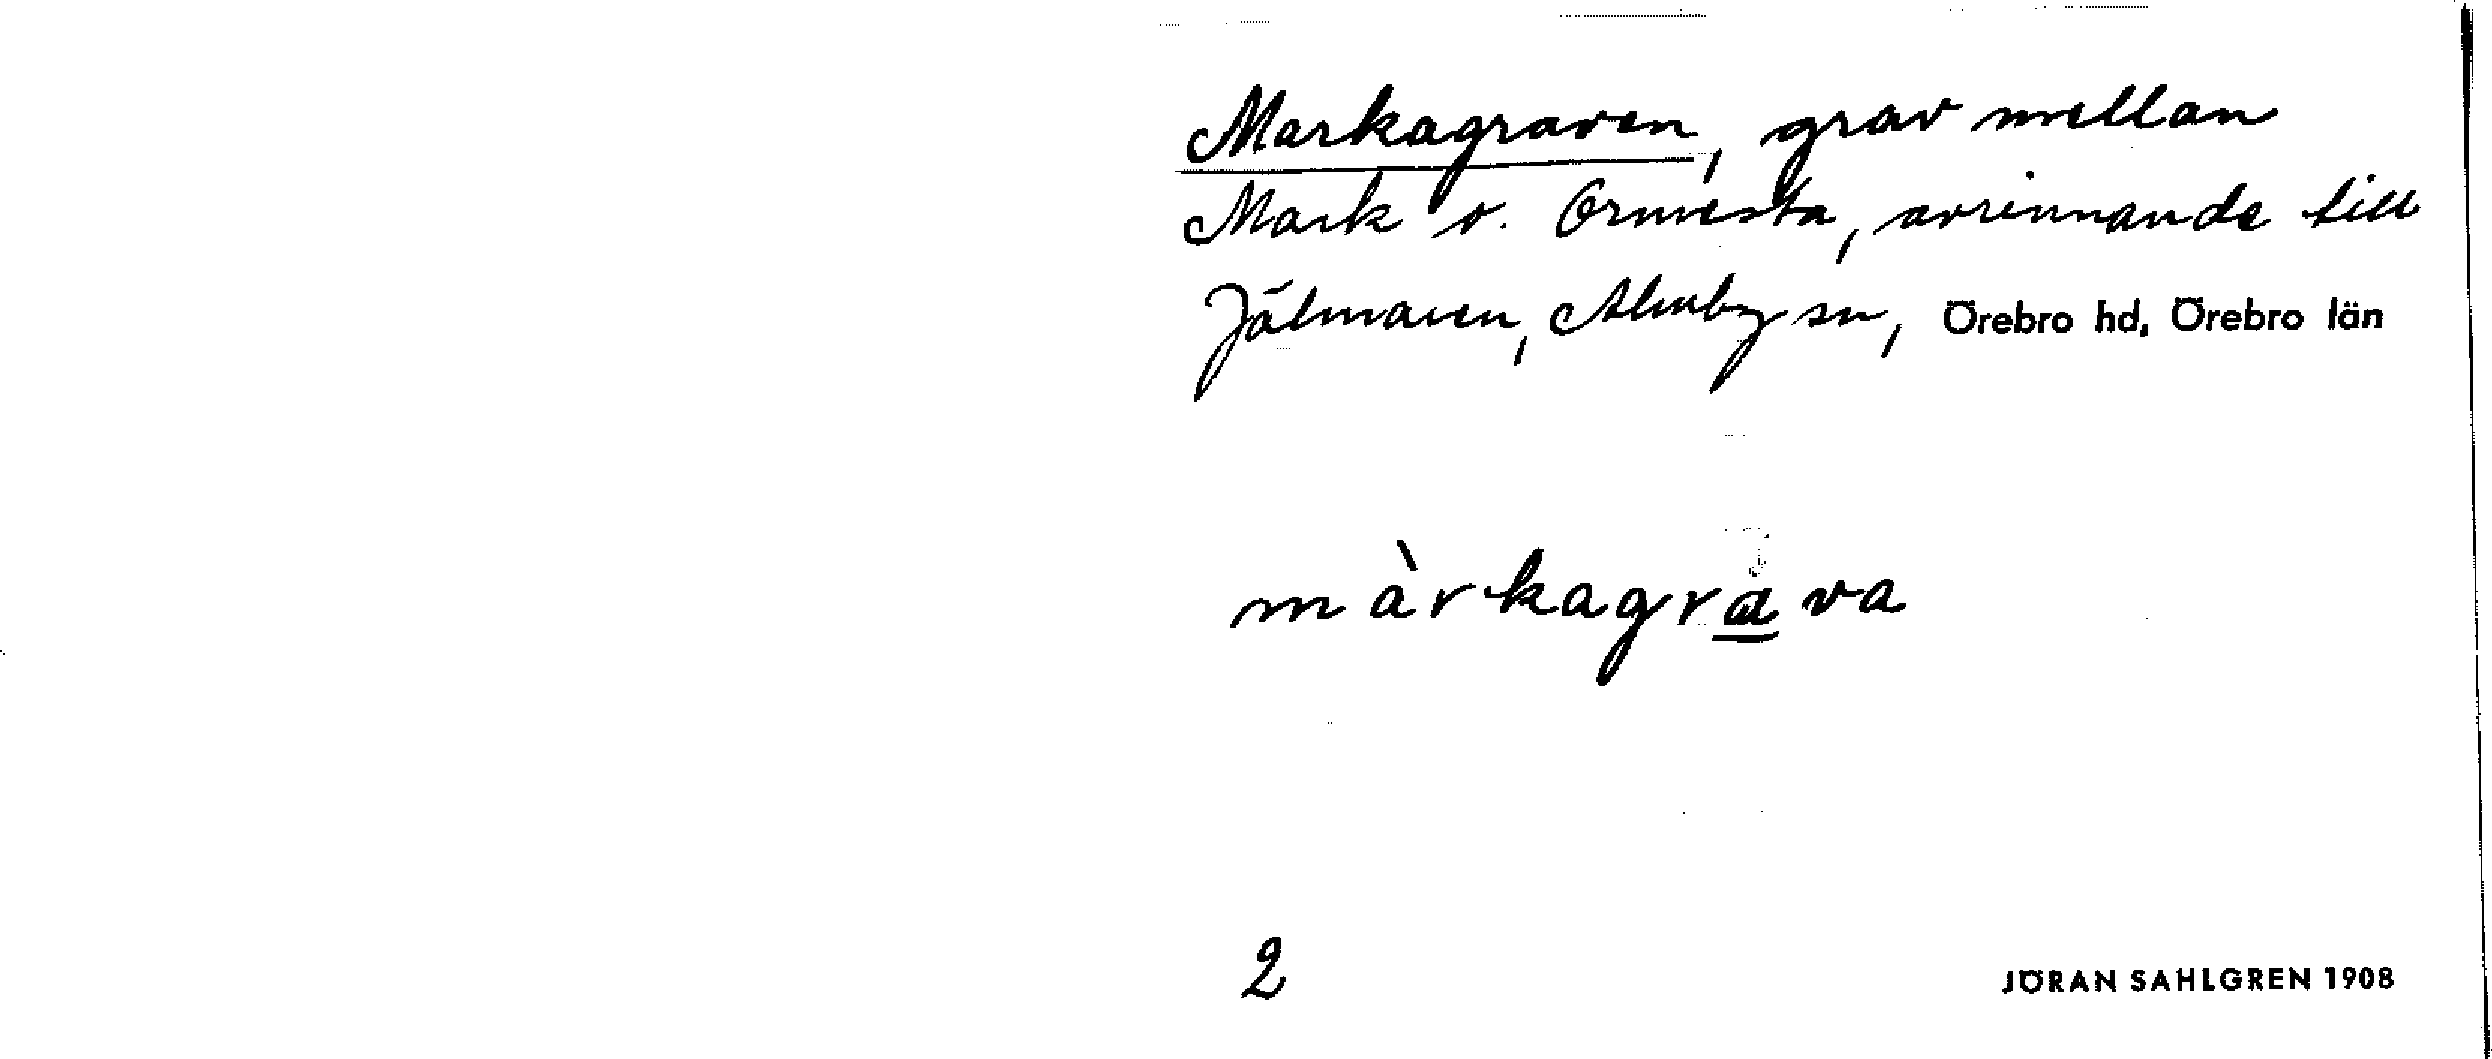 Markagraven, grav mellan
Mark o. Ormesta, avrinnande till
Jälmaren, Almby sn, Örebro hd, Örebro län
màrkagrava
2
JÖRAN SAHLGREN 1908